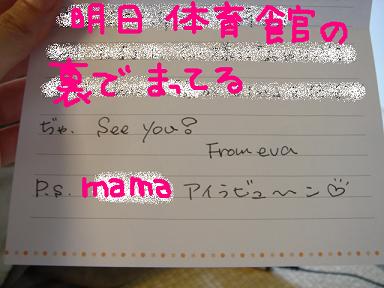 明日 体育館の
裏でまってる
ぢゃ. See you?
From eva
P.S. mama アイラビュ〜ン♡